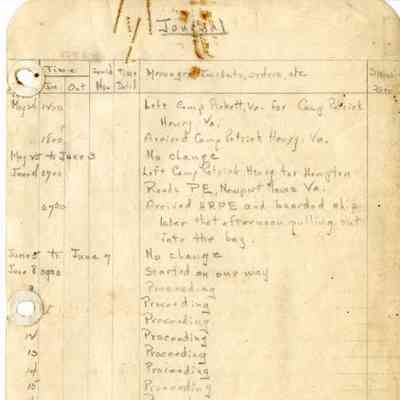 Journal
Time Time Messages, Incidents, orders, etc
In Out No. Dis
May 24 1200 Left Camp Pickett, Va. for Camp Patrick
Henry Va.
1800 Arrived Camp Patrick Henry, Va.
May 25 to June 3 No change
June 4 0700 Left Camp Patrick Henry for Hampton
Roads PE, Newport News Va.
0900 Arrived HRPE and boarded ship
later that afternoon pulling out
into the bay.
June 5 to June 7 No change
June 8 0900 Started on our way
9 Proceeding
Proceeding
Proceeding
12 Proceeding
13 Proceeding
14 Proceeding
15 Proceeding